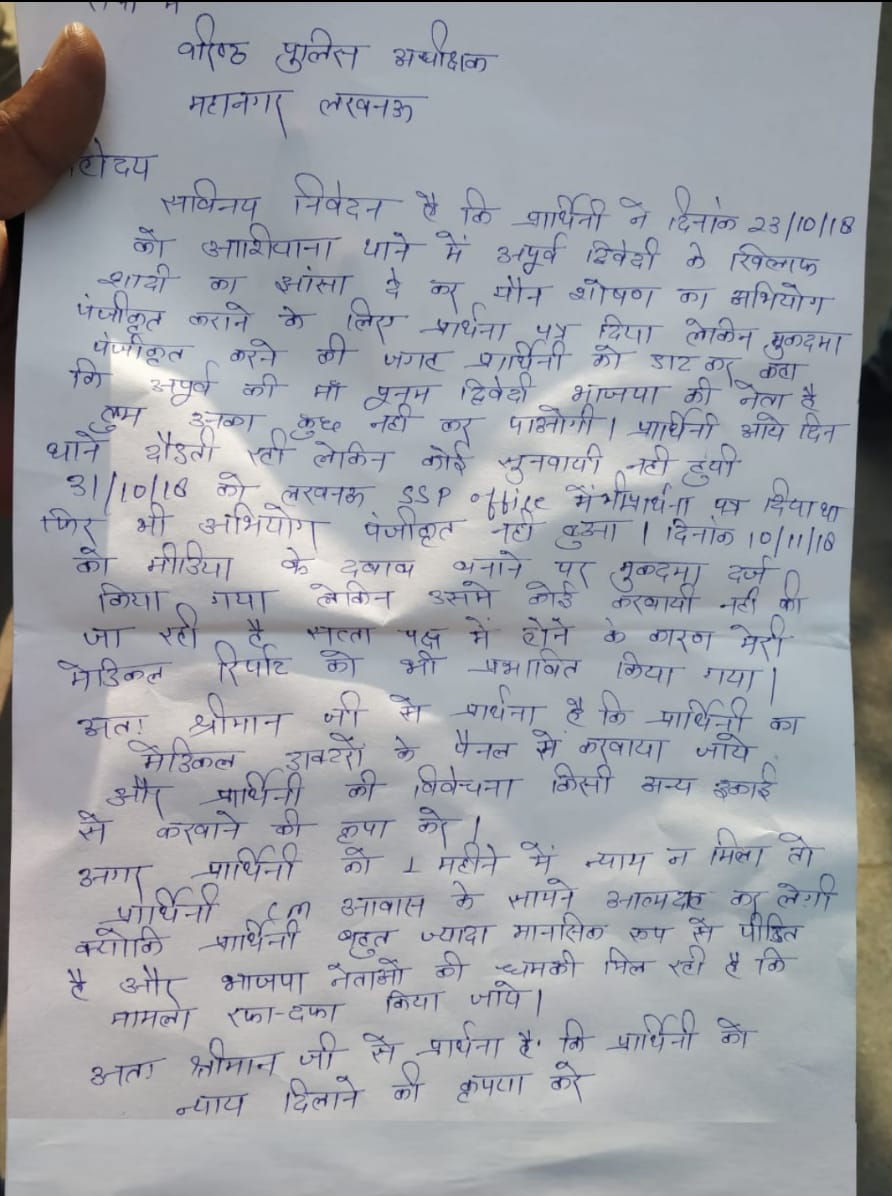 वरिष्ठ पुलिस अधीक्षक
महानगर लखनऊ
होदय
सविनय निवेदन है कि प्रार्थिनी ने दिनांक 23/10/18
को आशियाना थाने में अपूर्व द्विवेदी के खिलाफ
शादी का झांसा दे कर यौन शोषण का अभियोग
पंजीकृत कराने के लिए प्रार्थना पत्र दिया लेकिन मुकदमा
पंजीकृत करने की जगह प्रार्थिनी को डाट कर कहा
कि अपूर्व की माँ पूनम द्विवेदी भाजपा की नेता है
तुम उनका कुछ नही कर पाओगी। प्रार्थिनी आये दिन
थाने दौडती रही लेकिन कोई सुनवायी नही हुयी
31/10/18 को लखनऊ SSP office में भी प्रार्थना पत्र दिया था
फिर भी अभियोग पंजीकृत नही हुआ। दिनांक 10/11/18
को मीडिया के दवाव बनाने पर मुकदमा दर्ज
किया गया लेकिन उसमे कोई करवायी नही की
जा रही है सत्ता पक्ष में होने के कारण मेरी
मेडिकल रिर्पोट को भी प्रभावित किया गया।
अतः श्रीमान जी से प्रार्थना है कि प्रार्थिनी का
मेडिकल डाक्टरों के पैनल से करवाया जाये
और प्रार्थिनी की विवेचना किसी अन्य इकाई
से करवाने की कृपा करे।
अगर प्रार्थिनी को 1 महीने में न्याय न मिला तो
प्रार्थिनी CM आवास के सामने आत्मदाह कर लेगी
क्योकि प्रार्थिनी बहुत ज्यादा मानसिक रूप से पीडित
है और भाजपा नेताओं की धमकी मिल रही है कि
मामला रफा-दफा किया जाये।
अतः श्रीमान जी से प्रार्थना है कि प्रार्थिनी को
न्याय दिलाने की कृपया करे